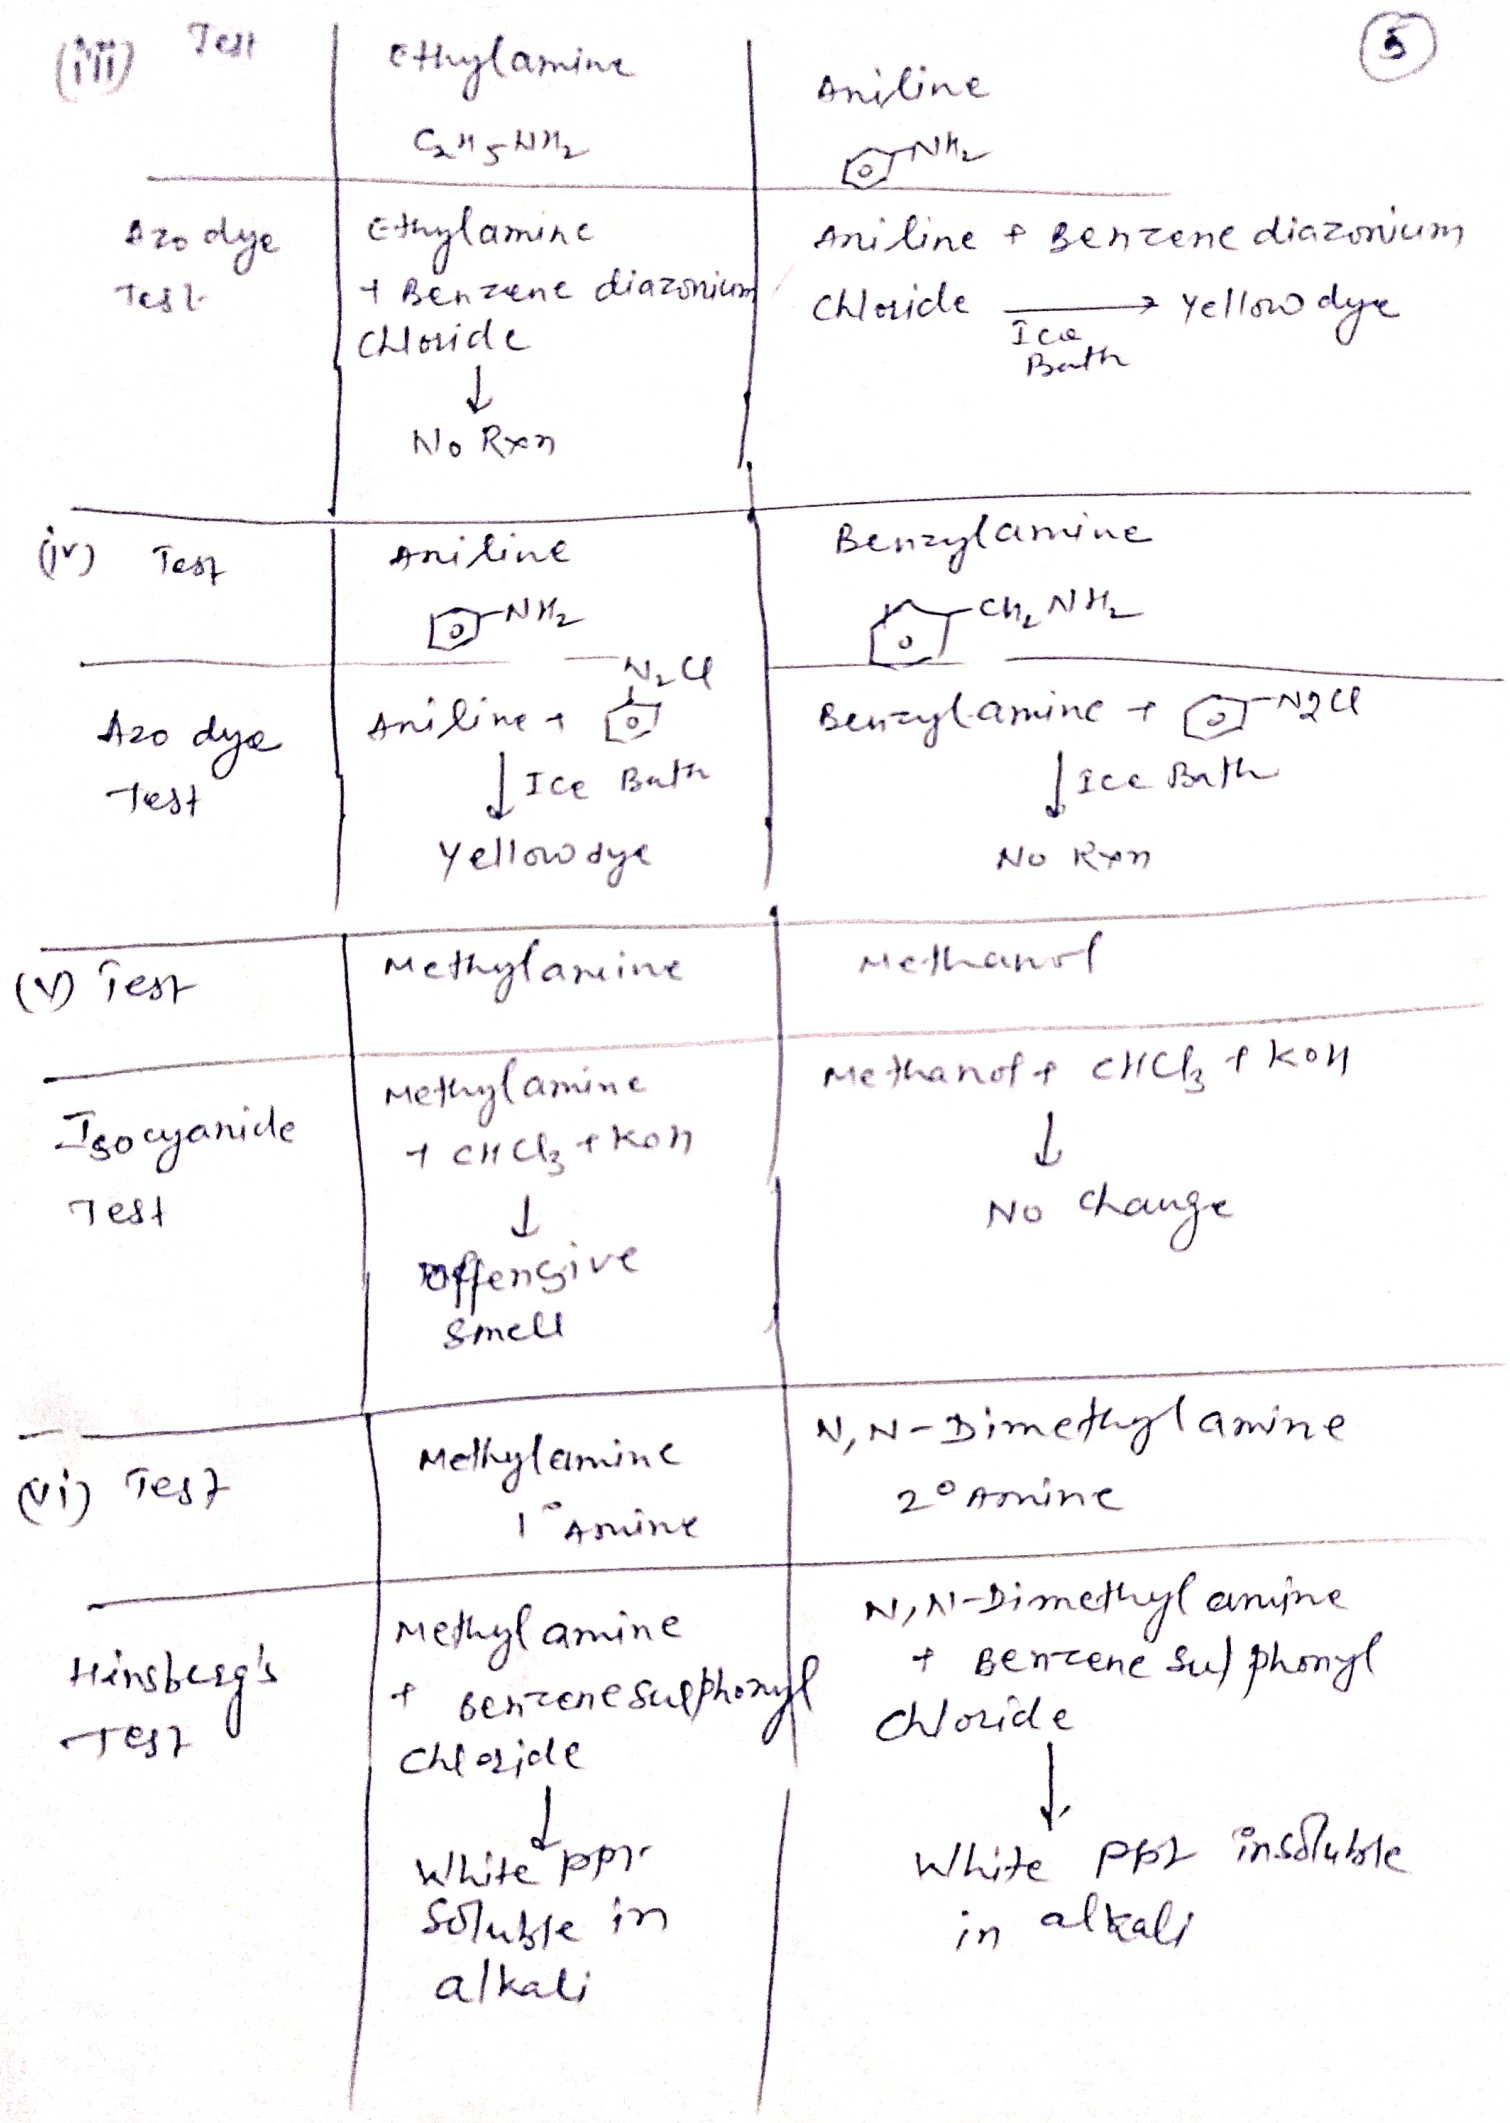 5
(iii) Test
Ethylamine
C2H5NH2
Aniline
NH2
Azo dye
Test
Ethylamine
+ Benzene diazonium
chloride
↓
No Rxn
Aniline + Benzene diazonium
chloride → Yellow dye
Ice
Bath
(iv) Test
Aniline
NH2
Benzylamine
CH2NH2
Azo dye
Test
Aniline + N2Cl
↓ Ice Bath
Yellow dye
Benzylamine + N2Cl
↓ Ice Bath
No Rxn
(v) Test
Methylamine
Methanol
Isocyanide
Test
Methylamine
+ CHCl3 + KOH
↓
offensive
smell
Methanol + CHCl3 + KOH
↓
No change
(vi) Test
Methylamine
1° Amine
N,N-Dimethylamine
2° Amine
Hinsberg's
Test
Methylamine
+ Benzene sulphonyl
chloride
↓
White ppt
soluble in
alkali
N,N-Dimethylamine
+ Benzene sulphonyl
chloride
↓
White ppt insoluble
in alkali